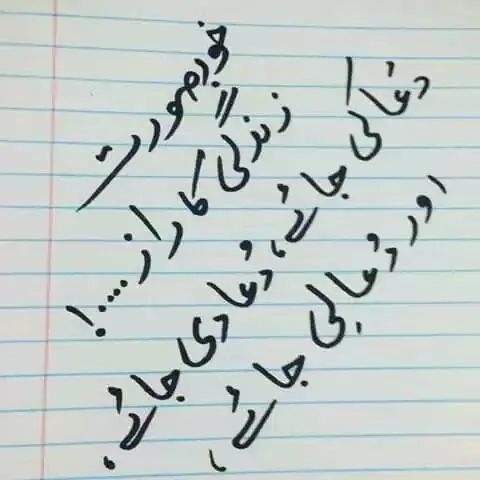 خوبصورت
زندگی کا راز....!
دعا کی جائے، دعا دی جائے،
اور دعا لی جائے،